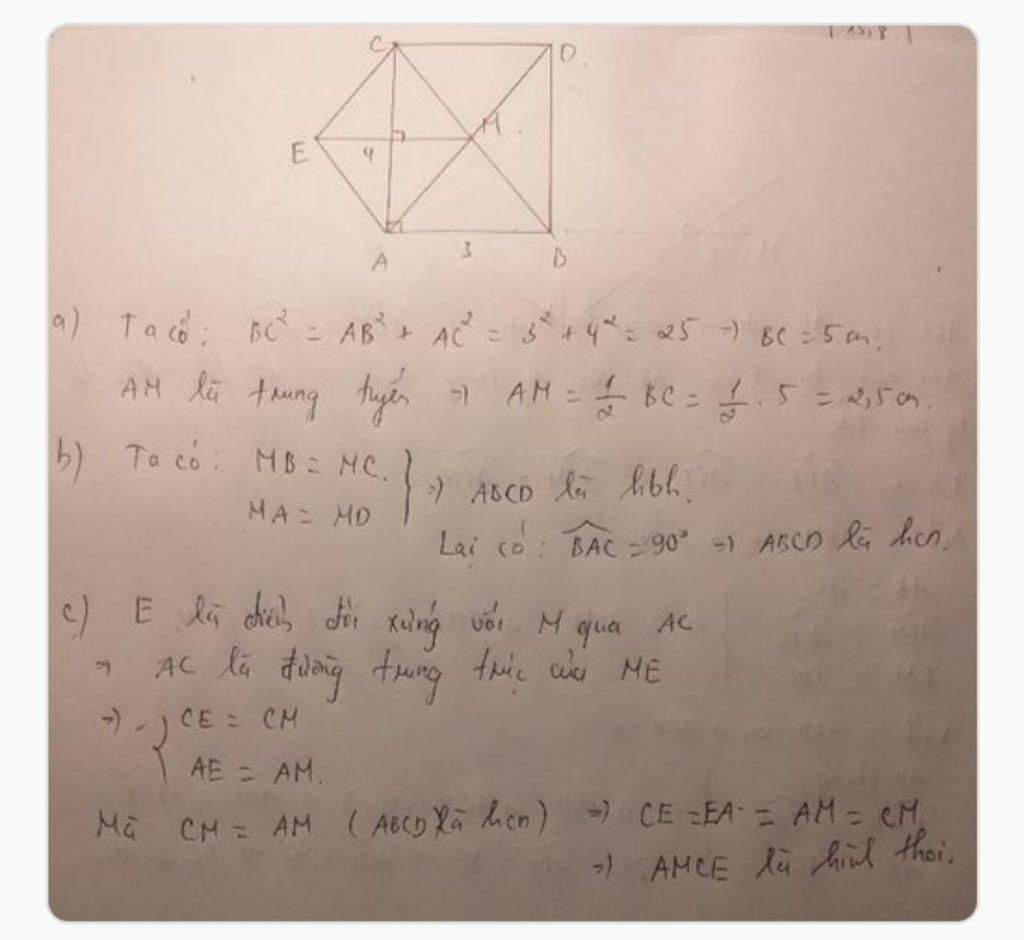 C D
M
E 4
A 3 B
a) Ta có: BC² = AB² + AC² = 3² + 4² = 25 => BC = 5 cm.
AM là trung tuyến => AM = 1/2 BC = 1/2 . 5 = 2,5 cm.
b) Ta có: MB = MC.
MA = MD } => ABCD là hbh.
Lại có: BAC = 90° => ABCD là hcn.
c) E là điểm đối xứng với M qua AC
=> AC là đường trung trực của ME
=> - { CE = CM
AE = AM.
Mà CM = AM (ABCD là hcn) => CE = EA = AM = CM
=> AMCE là hình thoi.